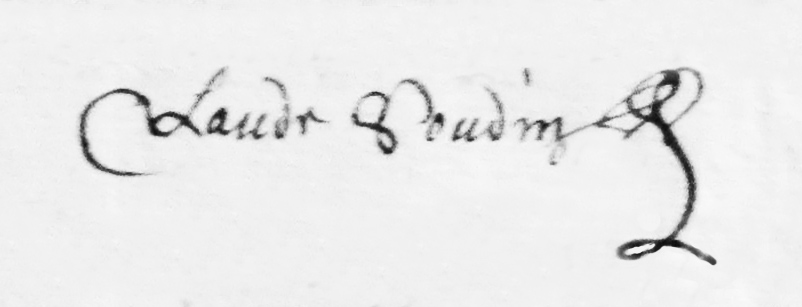 Claude Boudin